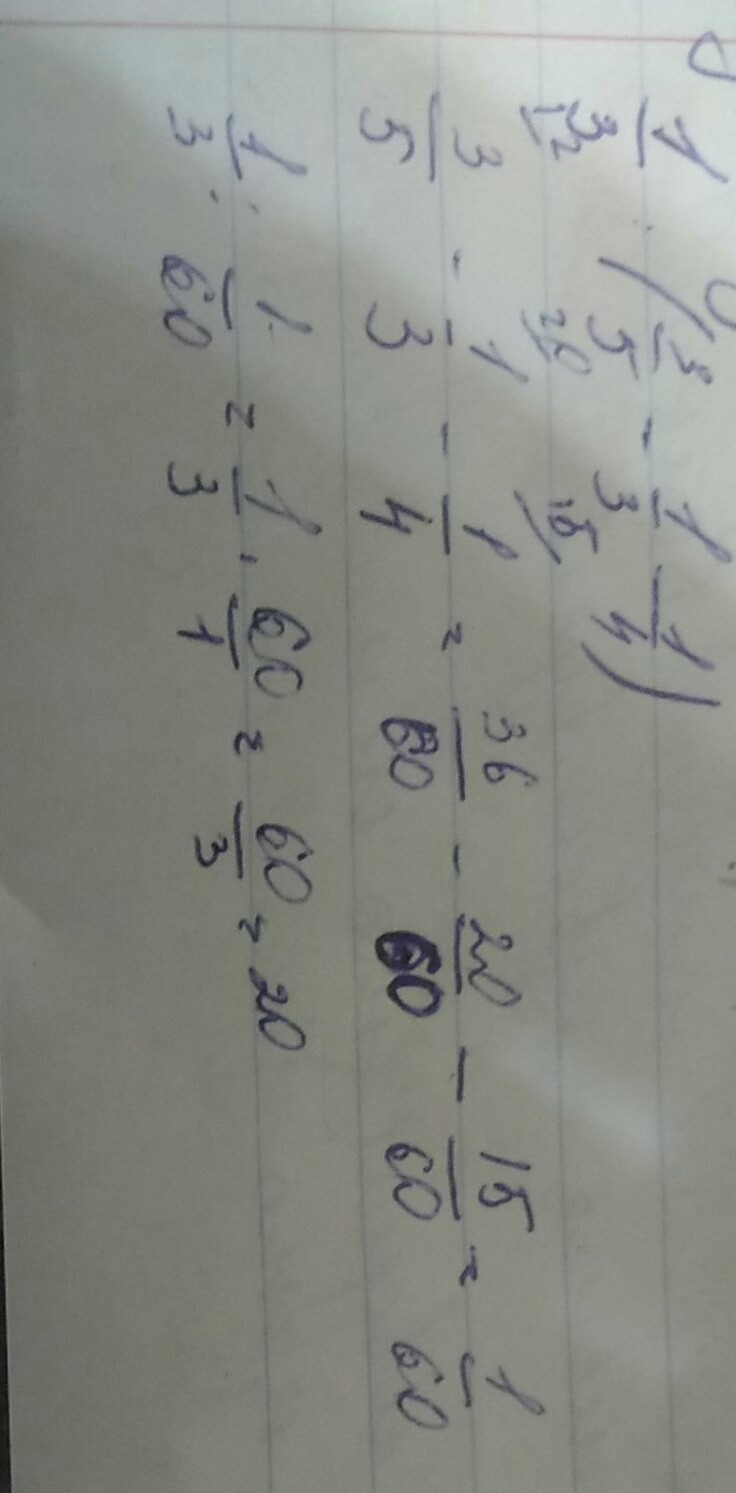 1/3 : (3/5 - 1/3 1/4)
12 20 15
3/5 - 1/3 - 1/4 = 36/60 - 20/60 - 15/60 = 1/60
1/3 : 1/60 = 1/3 · 60/1 = 60/3 = 20